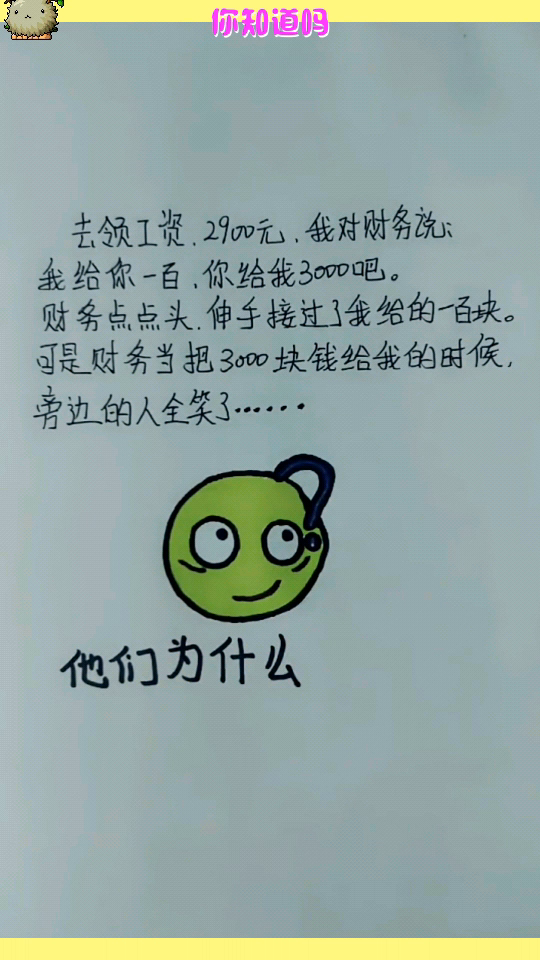 你知道吗
去领工资.2900元.我对财务说:
我给你一百,你给我3000吧。
财务点点头.伸手接过了我给的一百块。
可是财务当把3000块钱给我的时候,
旁边的人全笑了……
他们为什么